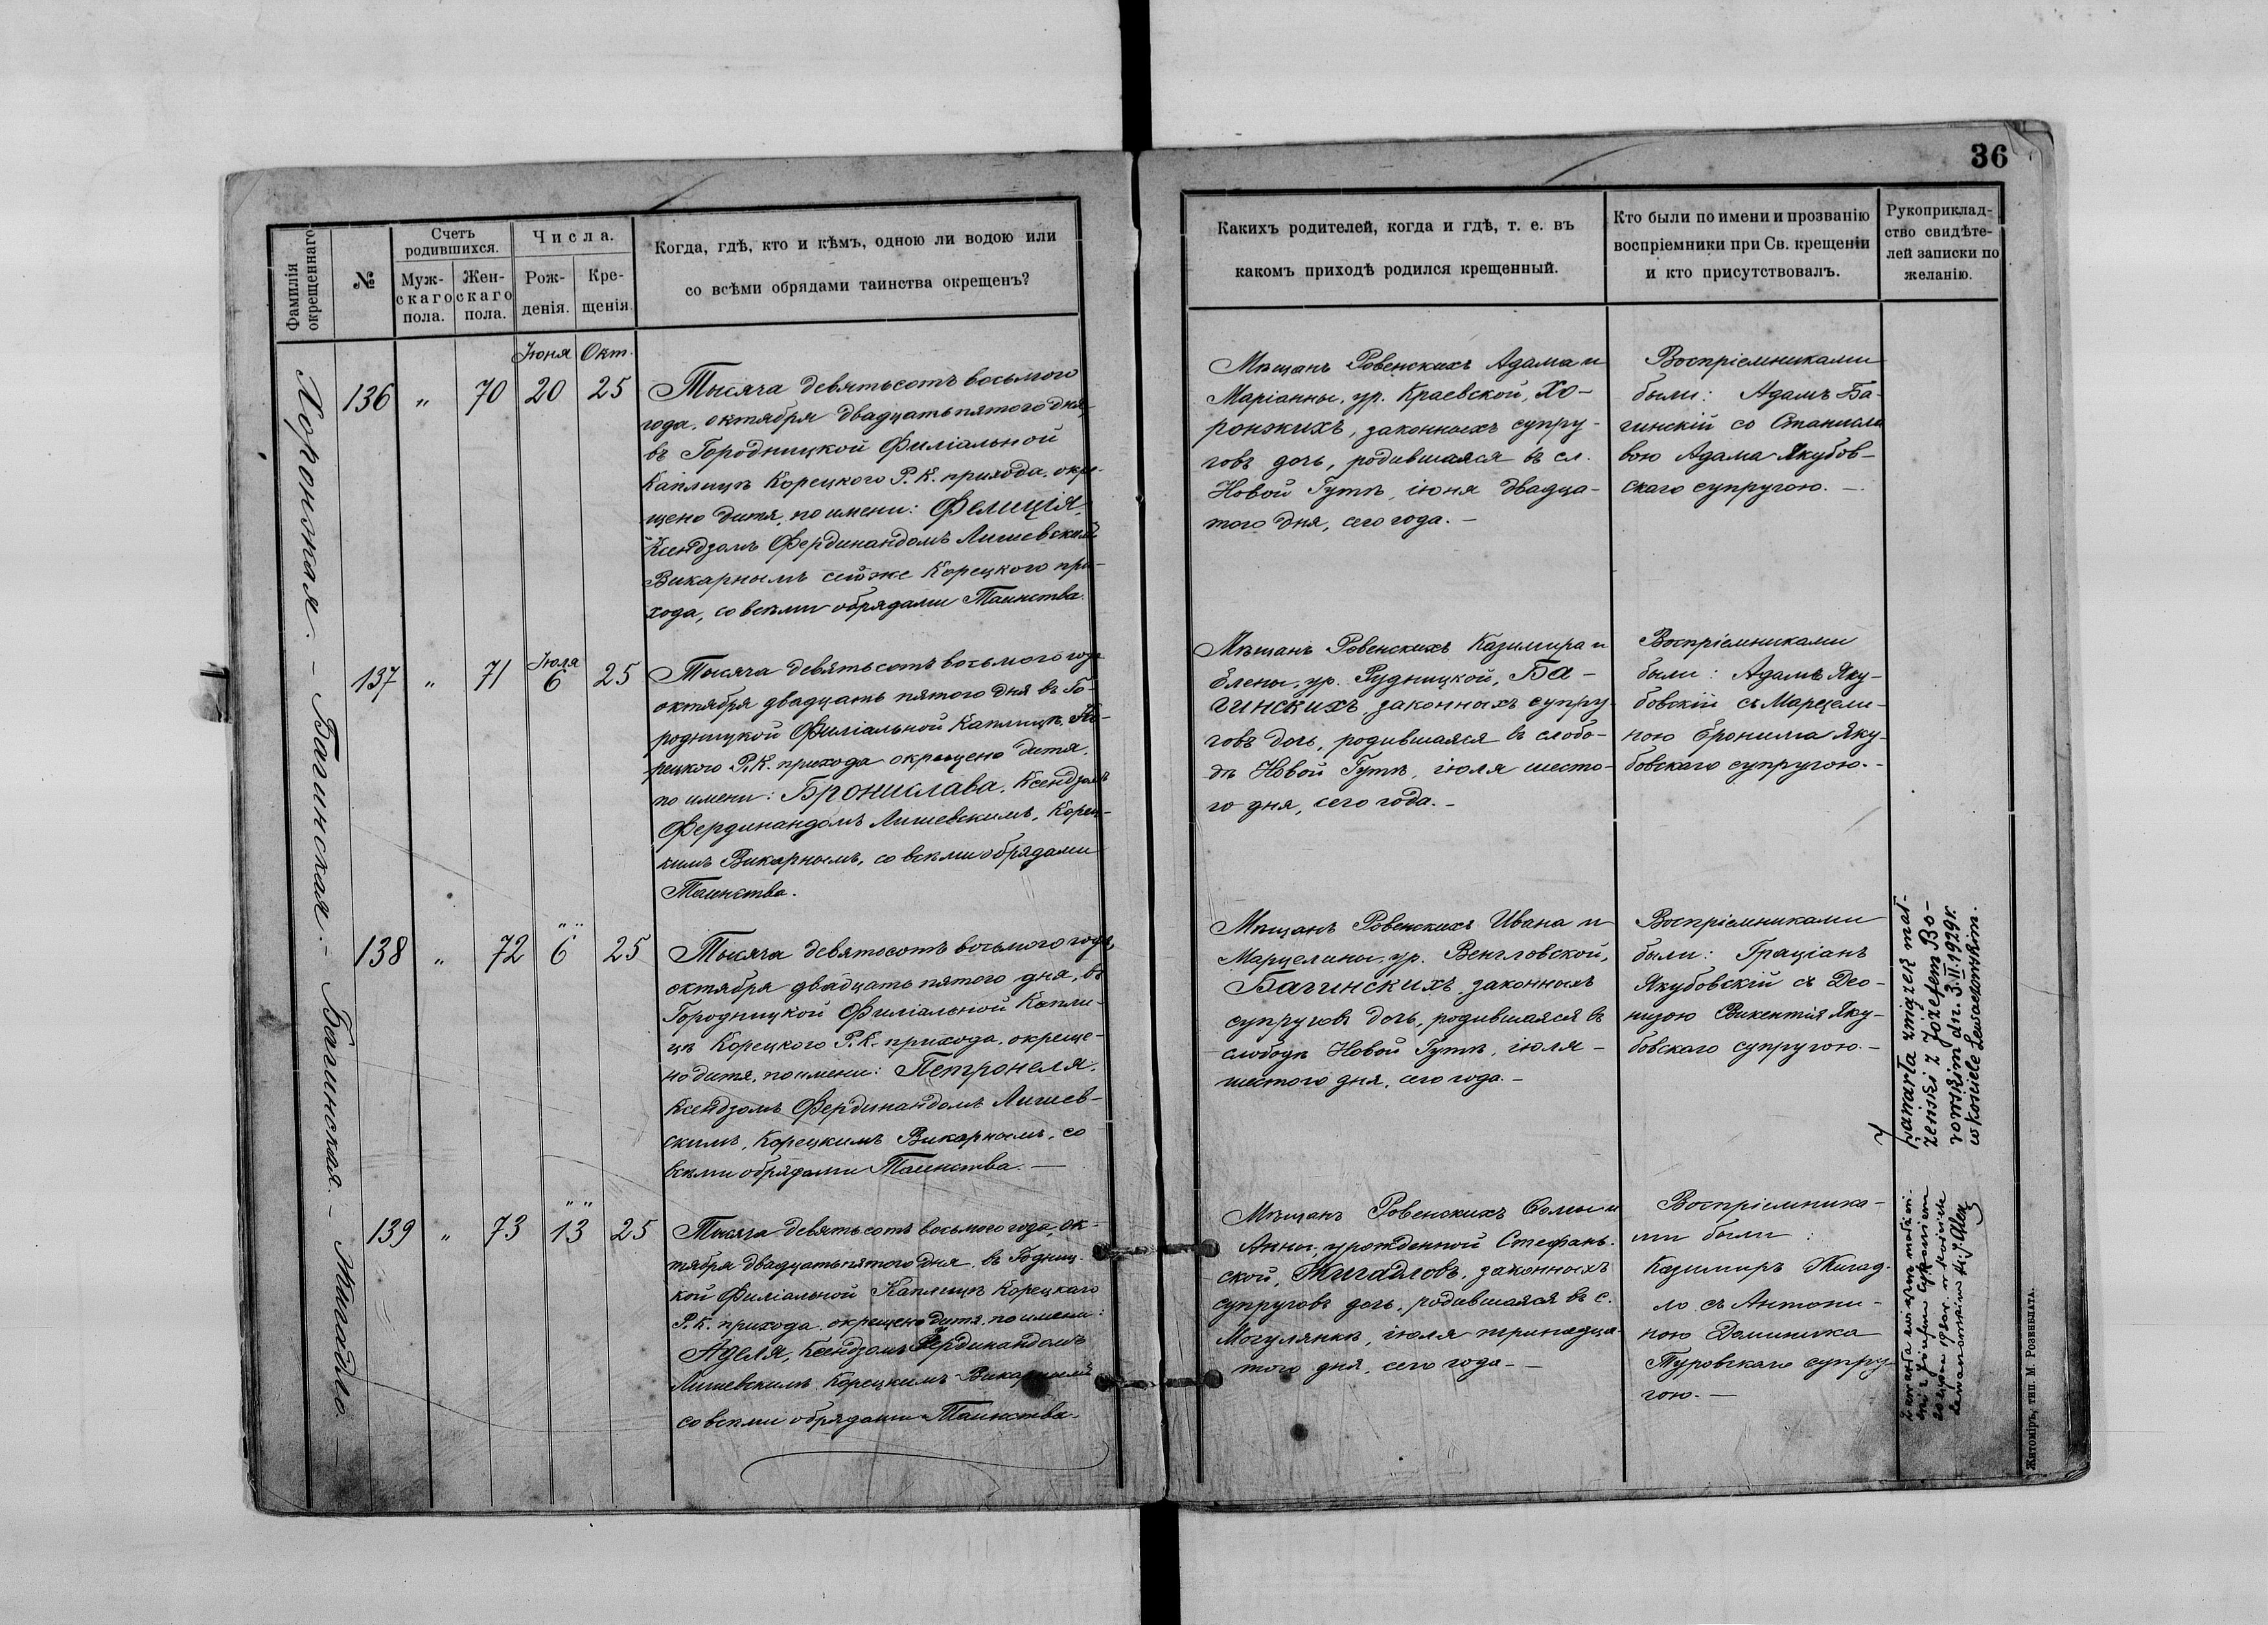 36
Фамилія окрещеннаго
№
Счетъ родившихся.
Муж-
скаго
пола.
Жен-
скаго
пола.
Числа.
Рож-
денія.
Кре-
щенія.
Когда, гдѣ, кто и кѣмъ, одною ли водою или
со всѣми обрядами таинства окрещенъ?
Какихъ родителей, когда и гдѣ, т. е. въ
какомъ приходѣ родился крещенный.
Кто были по имени и прозванію
воспріемники при Св. крещеніи
и кто присутствовалъ.
Рукоприклад-
ство свидѣте-
лей записки по
желанію.
Хоронжая. – Багинская. – Багинская. – Жигадло. –
Іюня Окт.
136 " 70 20 25
Тысяча девятьсотъ восьмого
года, октября двадцать пятого дня,
въ Городницкой Филіальной
Каплицѣ Корецкого Р. К. прихода, окре-
щено дитя, по имени: Фелиція,
Ксендзомъ Фердинандомъ Лишевскимъ
Викарнымъ сей же Корецкого при-
хода, со всѣми обрядами Таинства.
Мѣщанъ Ровенскихъ Адама и
Маріанны, ур. Краевской, Хо-
ронжихъ, законныхъ супру-
говъ дочь, родившаяся въ сл.
Новой Гутѣ, іюня двадца-
того дня, сего года. –
Воспріемниками
были: Адамъ Ба-
гинскій со Станисла
вою Адама Якубов-
скаго супругою. –
Іюля
137 " 71 6 25
Тысяча девятьсотъ восьмого года
октября двадцать пятого дня въ Го-
родницкой Филіальной Каплицѣ, Ко-
рецкого Р.К. прихода окрещено дитя,
по имени: Бронислава, Ксендзомъ
Фердинандомъ Лишевскимъ, Корец-
кимъ Викарнымъ, со всѣми обрядами
Таинства.
Мѣщанъ Ровенскихъ Казимира и
Елены, ур. Рудницкой, Ба-
гинскихъ, законныхъ супру-
говъ дочь, родившаяся въ слобо-
дѣ Новой Гутѣ, іюля шесто-
го дня, сего года. –
Воспріемниками
были: Адамъ Яку-
бовскій съ Марцели-
ною Іронима Яку-
бовскаго супругою. –
" "
138 " 72 6 25
Тысяча девятьсотъ восьмого года,
октября двадцать пятого дня, въ
Городницкой Филіальной Капли-
цѣ Корецкого Р.К. прихода, окреще-
но дитя, по имени: Петронеля,
Ксендзомъ Фердинандомъ Лишев-
скимъ, Корецкимъ Викарнымъ, со
всѣми обрядами Таинства. –
Мѣщанъ Ровенскихъ Ивана и
Марцелины, ур. Венгловской,
Багинскихъ, законныхъ
супруговъ дочь, родившаяся въ
слободѣ Новой Гутѣ, іюля –
шестого дня, сего года. –
Воспріемниками
были: Граціанъ
Якубовскій съ Део-
низою Викентія Яку-
бовскаго супругою. –
zawarła związek mał-
żeński z Józefem Bo-
rowskim dn. 3.II.1929 r.
w Kościele Lewaczowskim.
" "
139 " 73 13 25
Тысяча девятьсотъ восьмого года, ок-
тября двадцать пятого дня, въ Годниц-
кой Филіальной Каплицѣ Корецкаго
Р.К. прихода, окрещено дитя, по имени:
Аделя, Ксендзомъ Фердинандомъ
Лишевскимъ, Корецкимъ Викарнымъ
со всѣми обрядами Таинства.
Мѣщанъ Ровенскихъ Ѳомы и
Анны, урожденной Стефань-
ской, Жигадловъ, законныхъ
супруговъ дочь, родившаяся въ с.
Могулянкѣ, іюля тринадца-
того дня, сего года – –
Воспріемника-
ми были:
Казимиръ Жигад-
ло съ Антони-
ною Доминика
Туровскаго супру-
гою. –
Zawarła
z Józefem
w kościele
Житоміръ, тип. М. Розенблата.